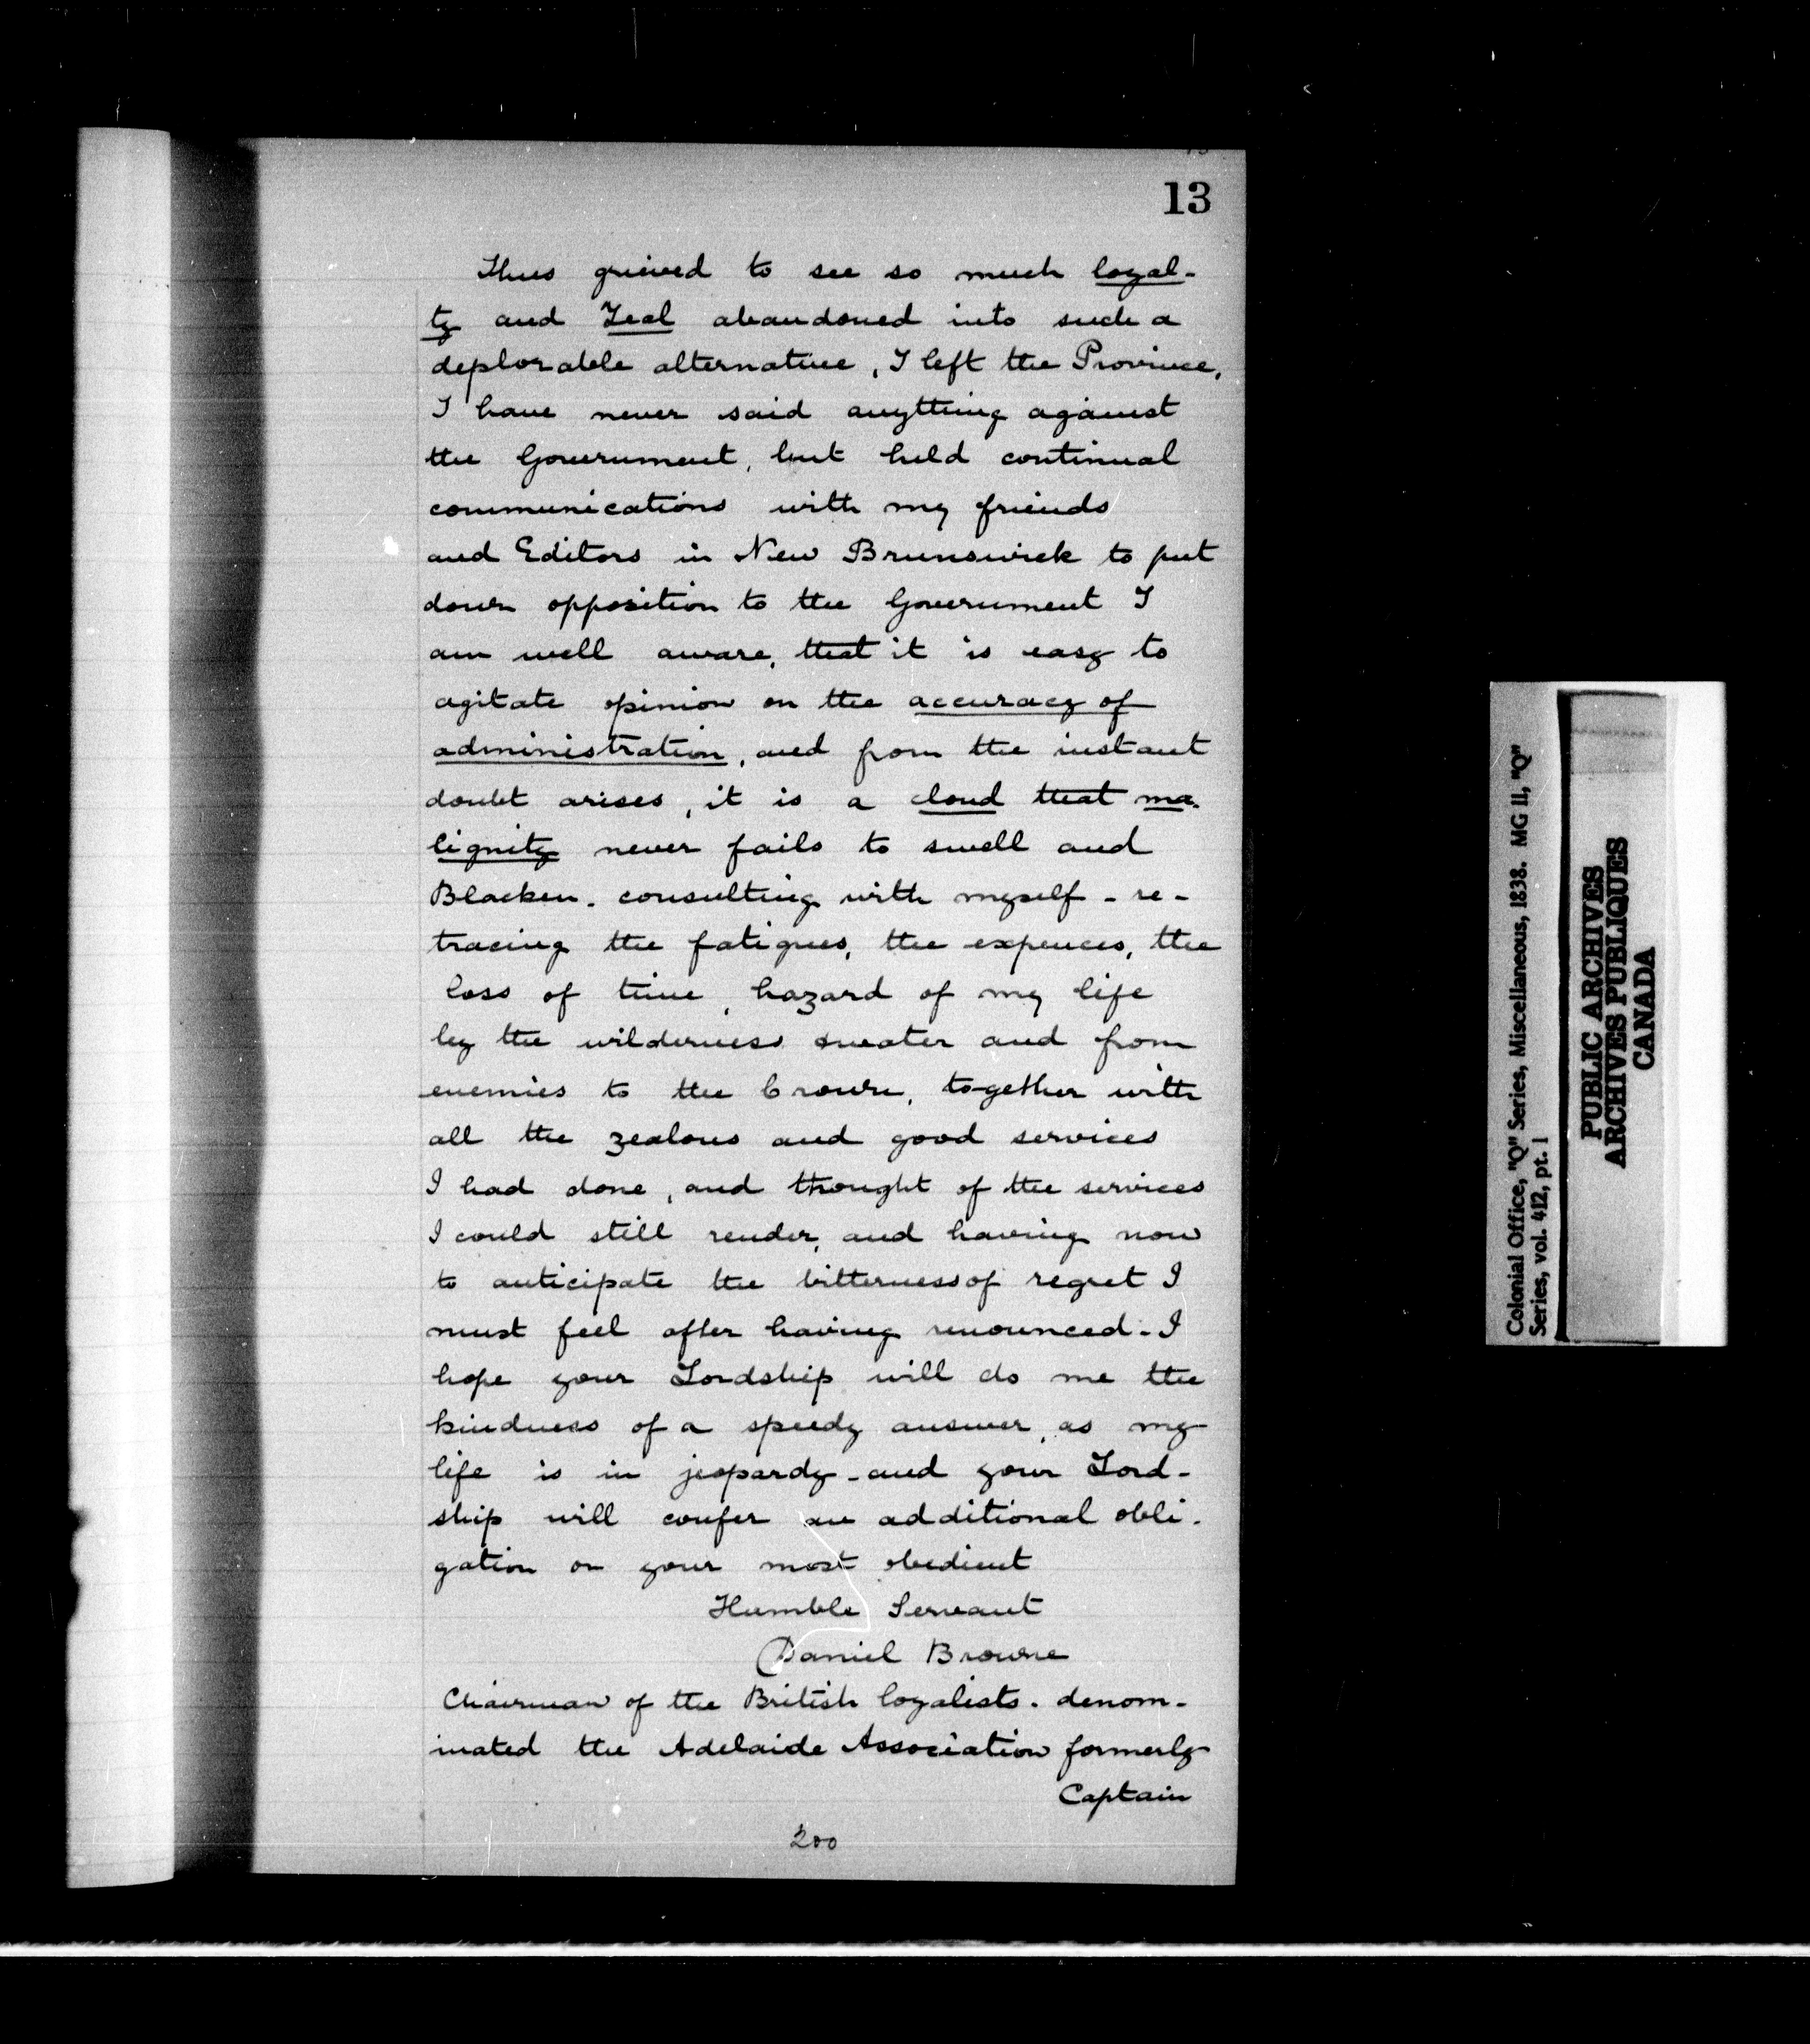 13
Thus grieved to see so much loyal-
ty and Zeal abandoned into such a
deplorable alternative, I left the Province,
I have never said anything against
the Government, but held continual
communications with my friends
and Editors in New Brunswick to put
down opposition to the Government I
am well aware, that it is easy to
agitate opinion on the accuracy of
administration, and from the instant
doubt arises, it is a cloud that ma-
lignity never fails to swell and
Blacken. consulting with myself - re-
tracing the fatigues, the expences, the
loss of time, hazard of my life
by the wilderness and from
enemies to the Crown, together with
all the zealous and good services
I had done, and thought of the services
I could still render, and having now
to anticipate the bitterness of regret I
must feel after having renounced - I
hope your Lordship will do me the
kindness of a speedy answer, as my
life is in jeopardy - and your Lord-
ship will confer an additional obli-
gation on your most obedient
Humble Servant
Daniel Browne
Chairman of the British loyalists. denom-
inated the Adelaide Association formerly
Captain
200
Colonial Office, "Q" Series, Miscellaneous, 1838. MG 11, "Q"
Series, vol. 412, pt. 1
PUBLIC ARCHIVES
ARCHIVES PUBLIQUES
CANADA